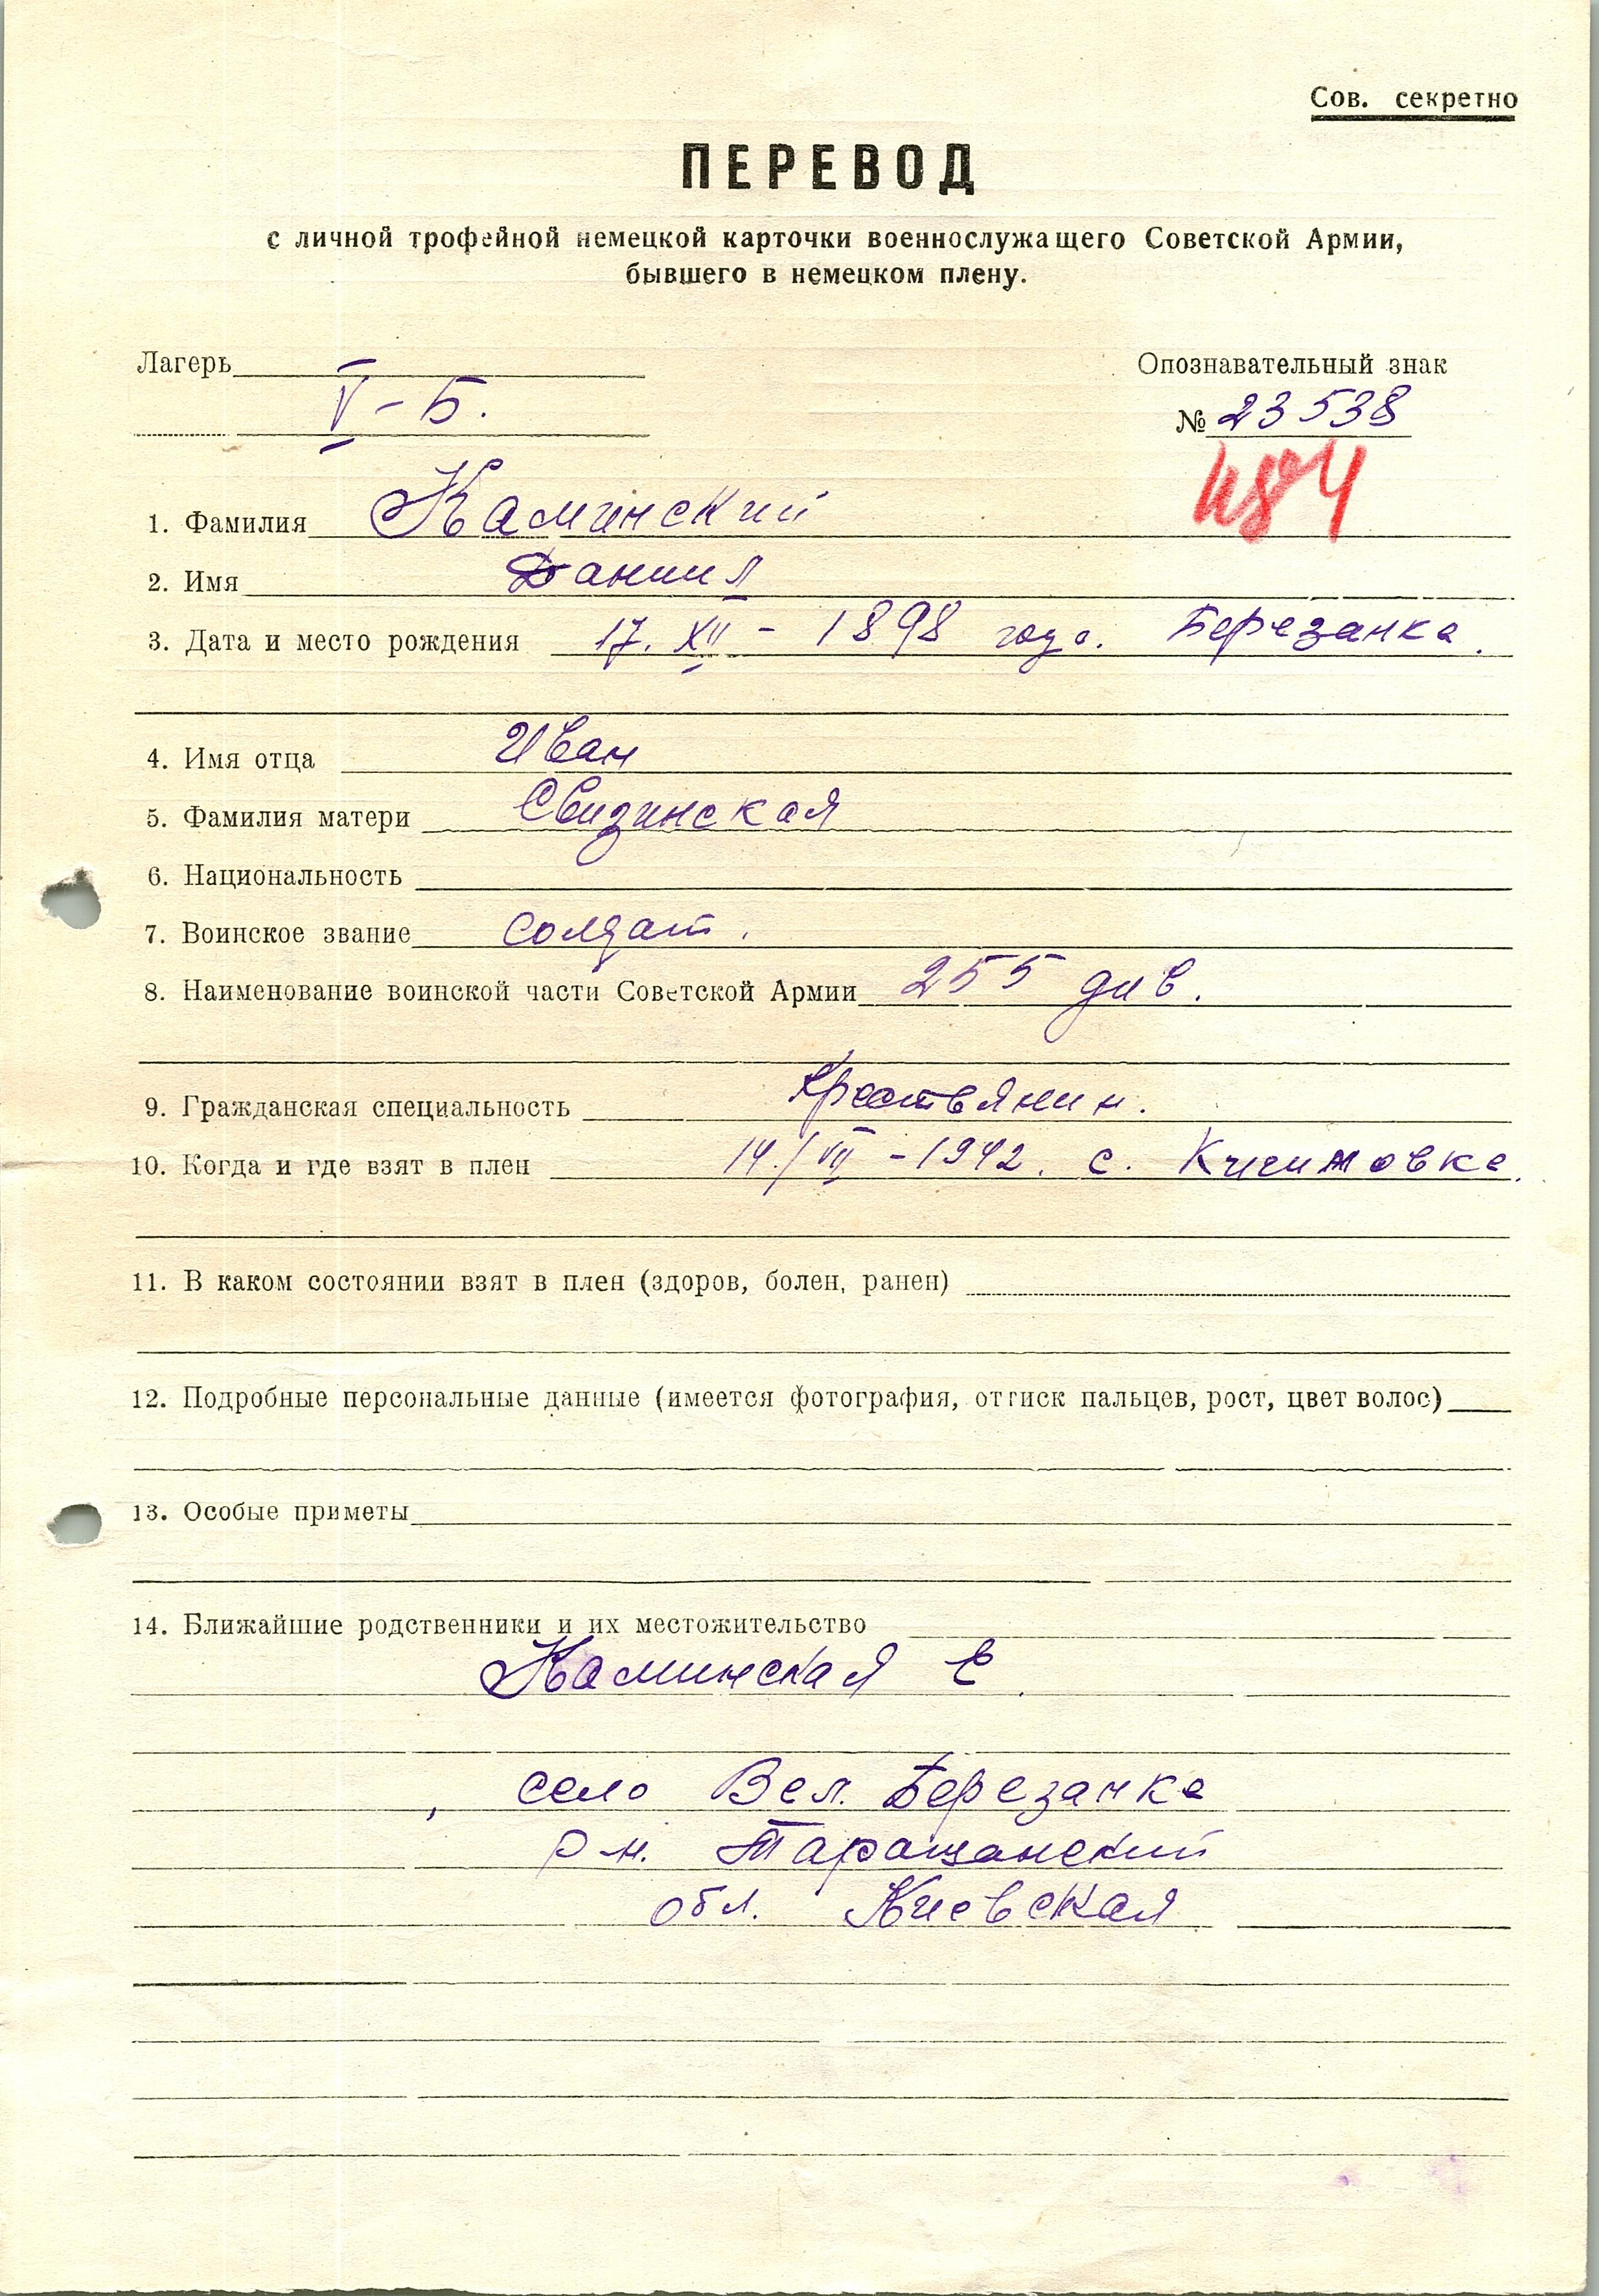 Сов. секретно
ПЕРЕВОД
с личной трофейной немецкой карточки военнослужащего Советской Армии,
бывшего в немецком плену.
Лагерь
V-Б.
Опознавательный знак
№ 23538
1. Фамилия Каминский
2. Имя Даниил
3. Дата и место рождения 17. XII - 1898 года. Березанка.
4. Имя отца Иван
5. Фамилия матери Свидзинская
6. Национальность
7. Воинское звание солдат.
8. Наименование воинской части Советской Армии 255 див.
9. Гражданская специальность Крестьянин.
10. Когда и где взят в плен 14./VII - 1942. с.
11. В каком состоянии взят в плен (здоров, болен, ранен)
12. Подробные персональные данные (имеется фотография, оттиск пальцев, рост, цвет волос)
13. Особые приметы
14. Ближайшие родственники и их местожительство
Каминская Е.
село Вел. Березанка
р-н. Таращанский
обл. Киевская